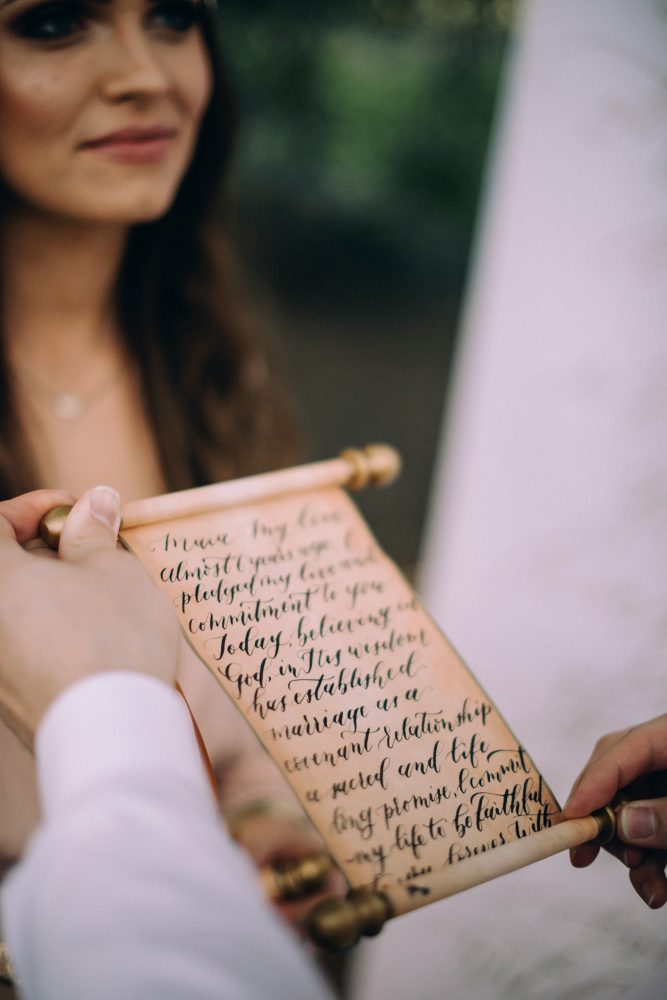 Maia My love
Almost 6 years ago, I
pledged my love and
commitment to you
Today, believing in
God, in His wisdom
has established
marriage as a
covenant relationship
a sacred and life
long promise, I commit
my life to be faithful
Forever With